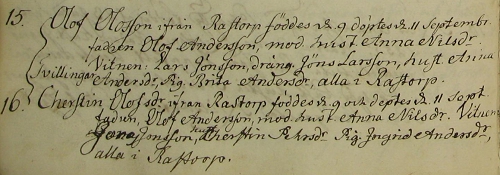 15. Olof Olofsson ifrån Rastorp föddes d. 9 döptes d. 11 Septembr.
fadren Olof Andersson, mod. hust. Anna Nilsdr.
Vitnen: Lars Jönsson, dräng Jöns Larsson, hust. Anna
Tvillingar Andersdr, Pig. Brita Andersdr, alla i Rastorp.
16. Cherstin Olofsdr. ifrån Rastorp föddes d. 9 och döptes d. 11 Sept.
fadren, Olof Andersson, mod. hust. Anna Nilsdr. Vitnen
Jonsson, hust Cherstin Pehrsdr Pig. Ingrid Andersdr,
alla i Rastorp.